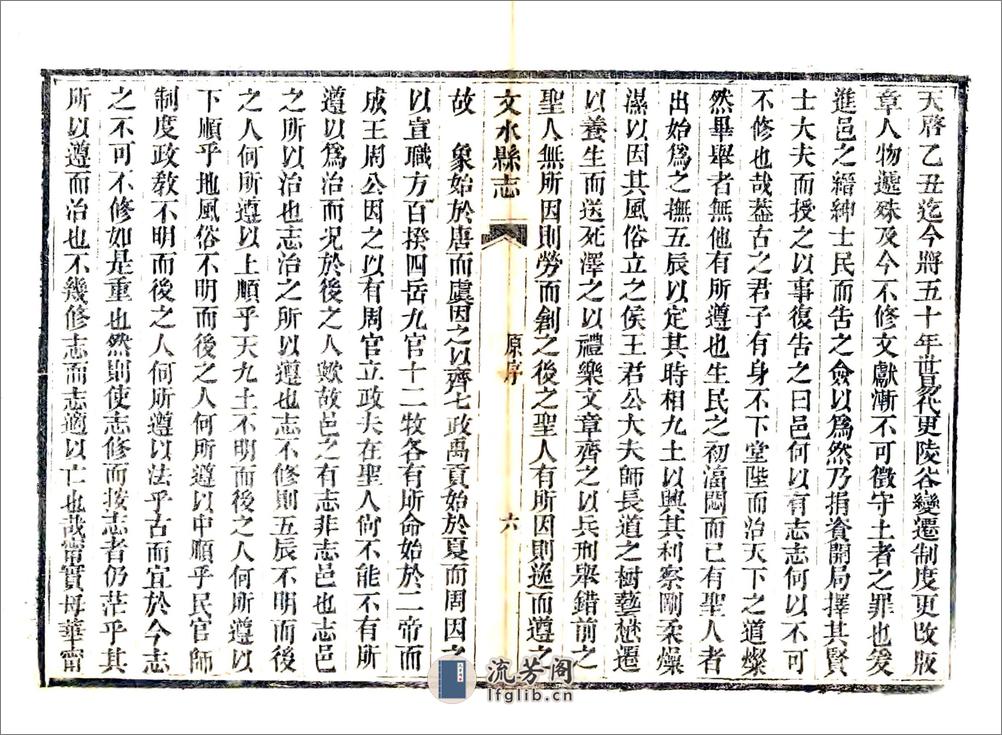 天啓乙丑迄今將五十年世易代更陵谷變遷制度更改版
章人物遞殊及今不修文獻漸不可徵守土者之罪也爰
進邑之縉紳士民而告之僉以爲然乃捐資開局擇其賢
士大夫而授之以事復告之曰邑何以有志志何以不可
不修也哉葢古之君子有身不下堂陛而治天下之道燦
然畢舉者無他有所遵也生民之初湢悶而已有聖人者
出始爲之撫五辰以定其時相九土以興其利察剛柔燥
濕以因其風俗立之侯王君公大夫師長道之樹藝懋遷
以養生而送死澤之以禮樂文章齊之以兵刑舉錯前之
聖人無所因則勞而創之後之聖人有所因則逸而遵之
文水縣志
原序
六
故 象始於唐而虞因之以齊七政禹貢始於夏而周因之
以宣職方百揆四岳九官十二牧各有所命始於二帝而
成王周公因之以有周官立政夫在聖人何不能不有所
遵以爲治而况於後之人歟故邑之有志非志邑也志邑
之所以治也志治之所以遵也志不修則五辰不明而後
之人何所遵以上順乎天九土不明而後之人何所遵以
下順乎地風俗不明而後之人何所遵以中順乎民官師
制度政敎不明而後之人何所遵以法乎古而宜於今志
之不可不修如是重也然則使志修而按志者仍茫乎其
所以遵而治也不幾修志而志適以亡也哉甯實毋華甯
流芳阁
lfglib.cn